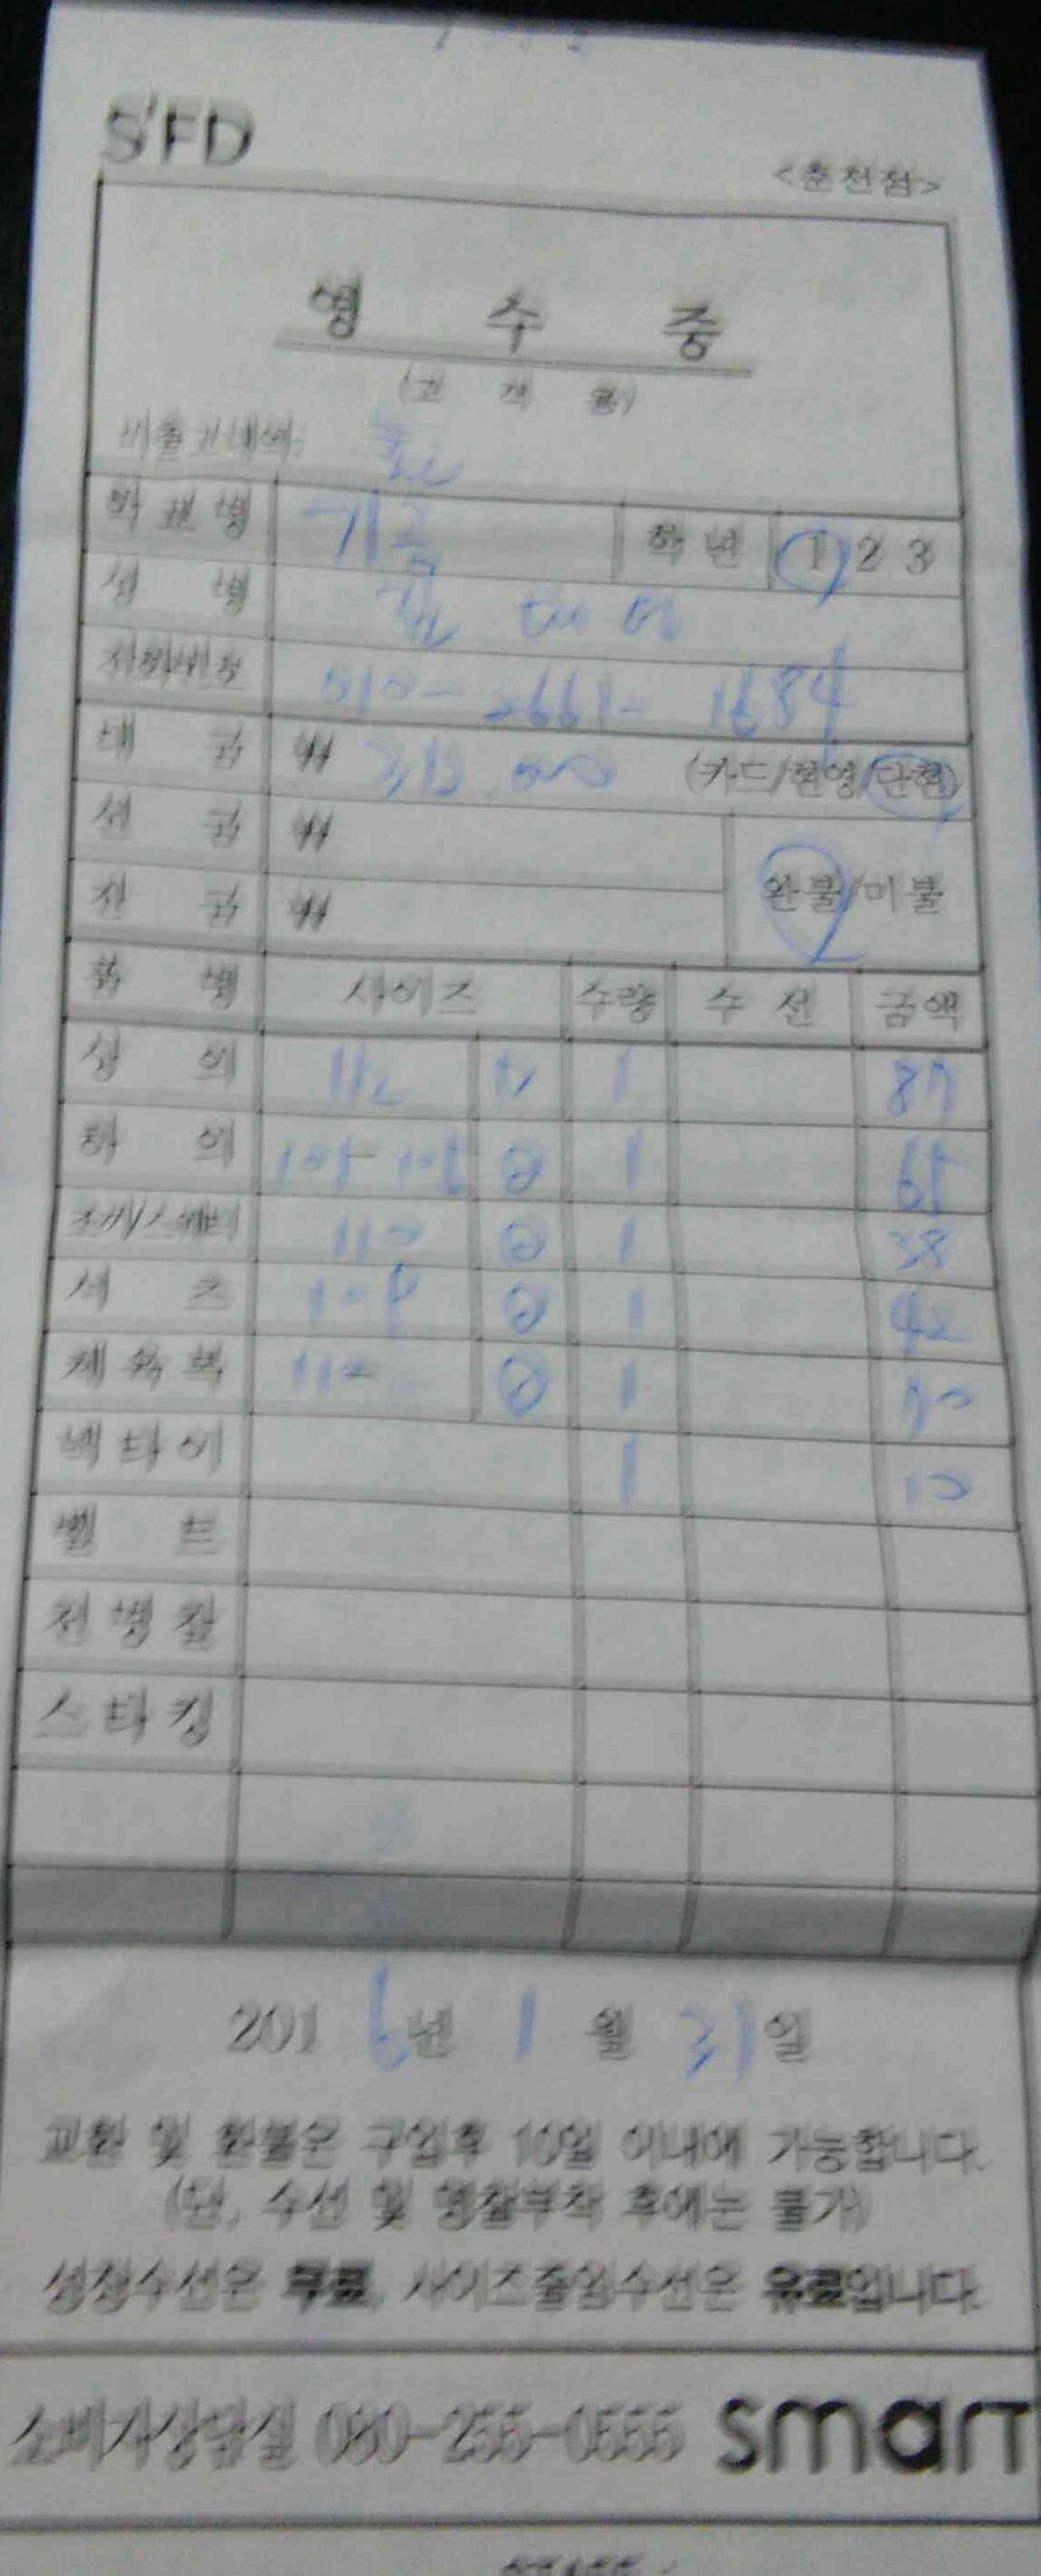 S'FD
<춘천점>
영 수 증
(고 객 용)
학 교 명 기공 학 년 1 2 3
성 명
전화번호 010-2661-1684
대 금 ₩ 312.000 (카드/현영/단현)
선 금 ₩ 완불/미불
잔 금 ₩
품 명 사이즈 수량 수 선 금액
상 의 112 1 87
하 의 1 65
조끼/스웨터 110 1 38
셔 츠 1 42
체 육 복 110 1 70
넥 타 이 1 10
벨 트
천 명 찰
스 타 킹
2016년 1월 31일
교환 및 환불은 구입후 10일 이내에 가능합니다.
(단, 수선 및 명찰부착 후에는 불가)
성장수선은 무료, 사이즈줄임수선은 유료입니다.
소비자상담실 080-255-0555 smart